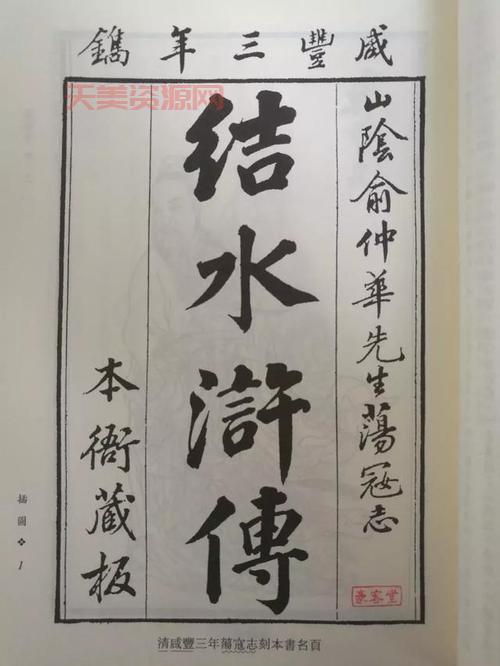 咸豐三年鐫
山陰俞仲華先生蕩寇志
結水滸傳
本衙藏板
天美资源网
豪客堂
插圖❖1
清咸豐三年蕩寇志刻本書名頁